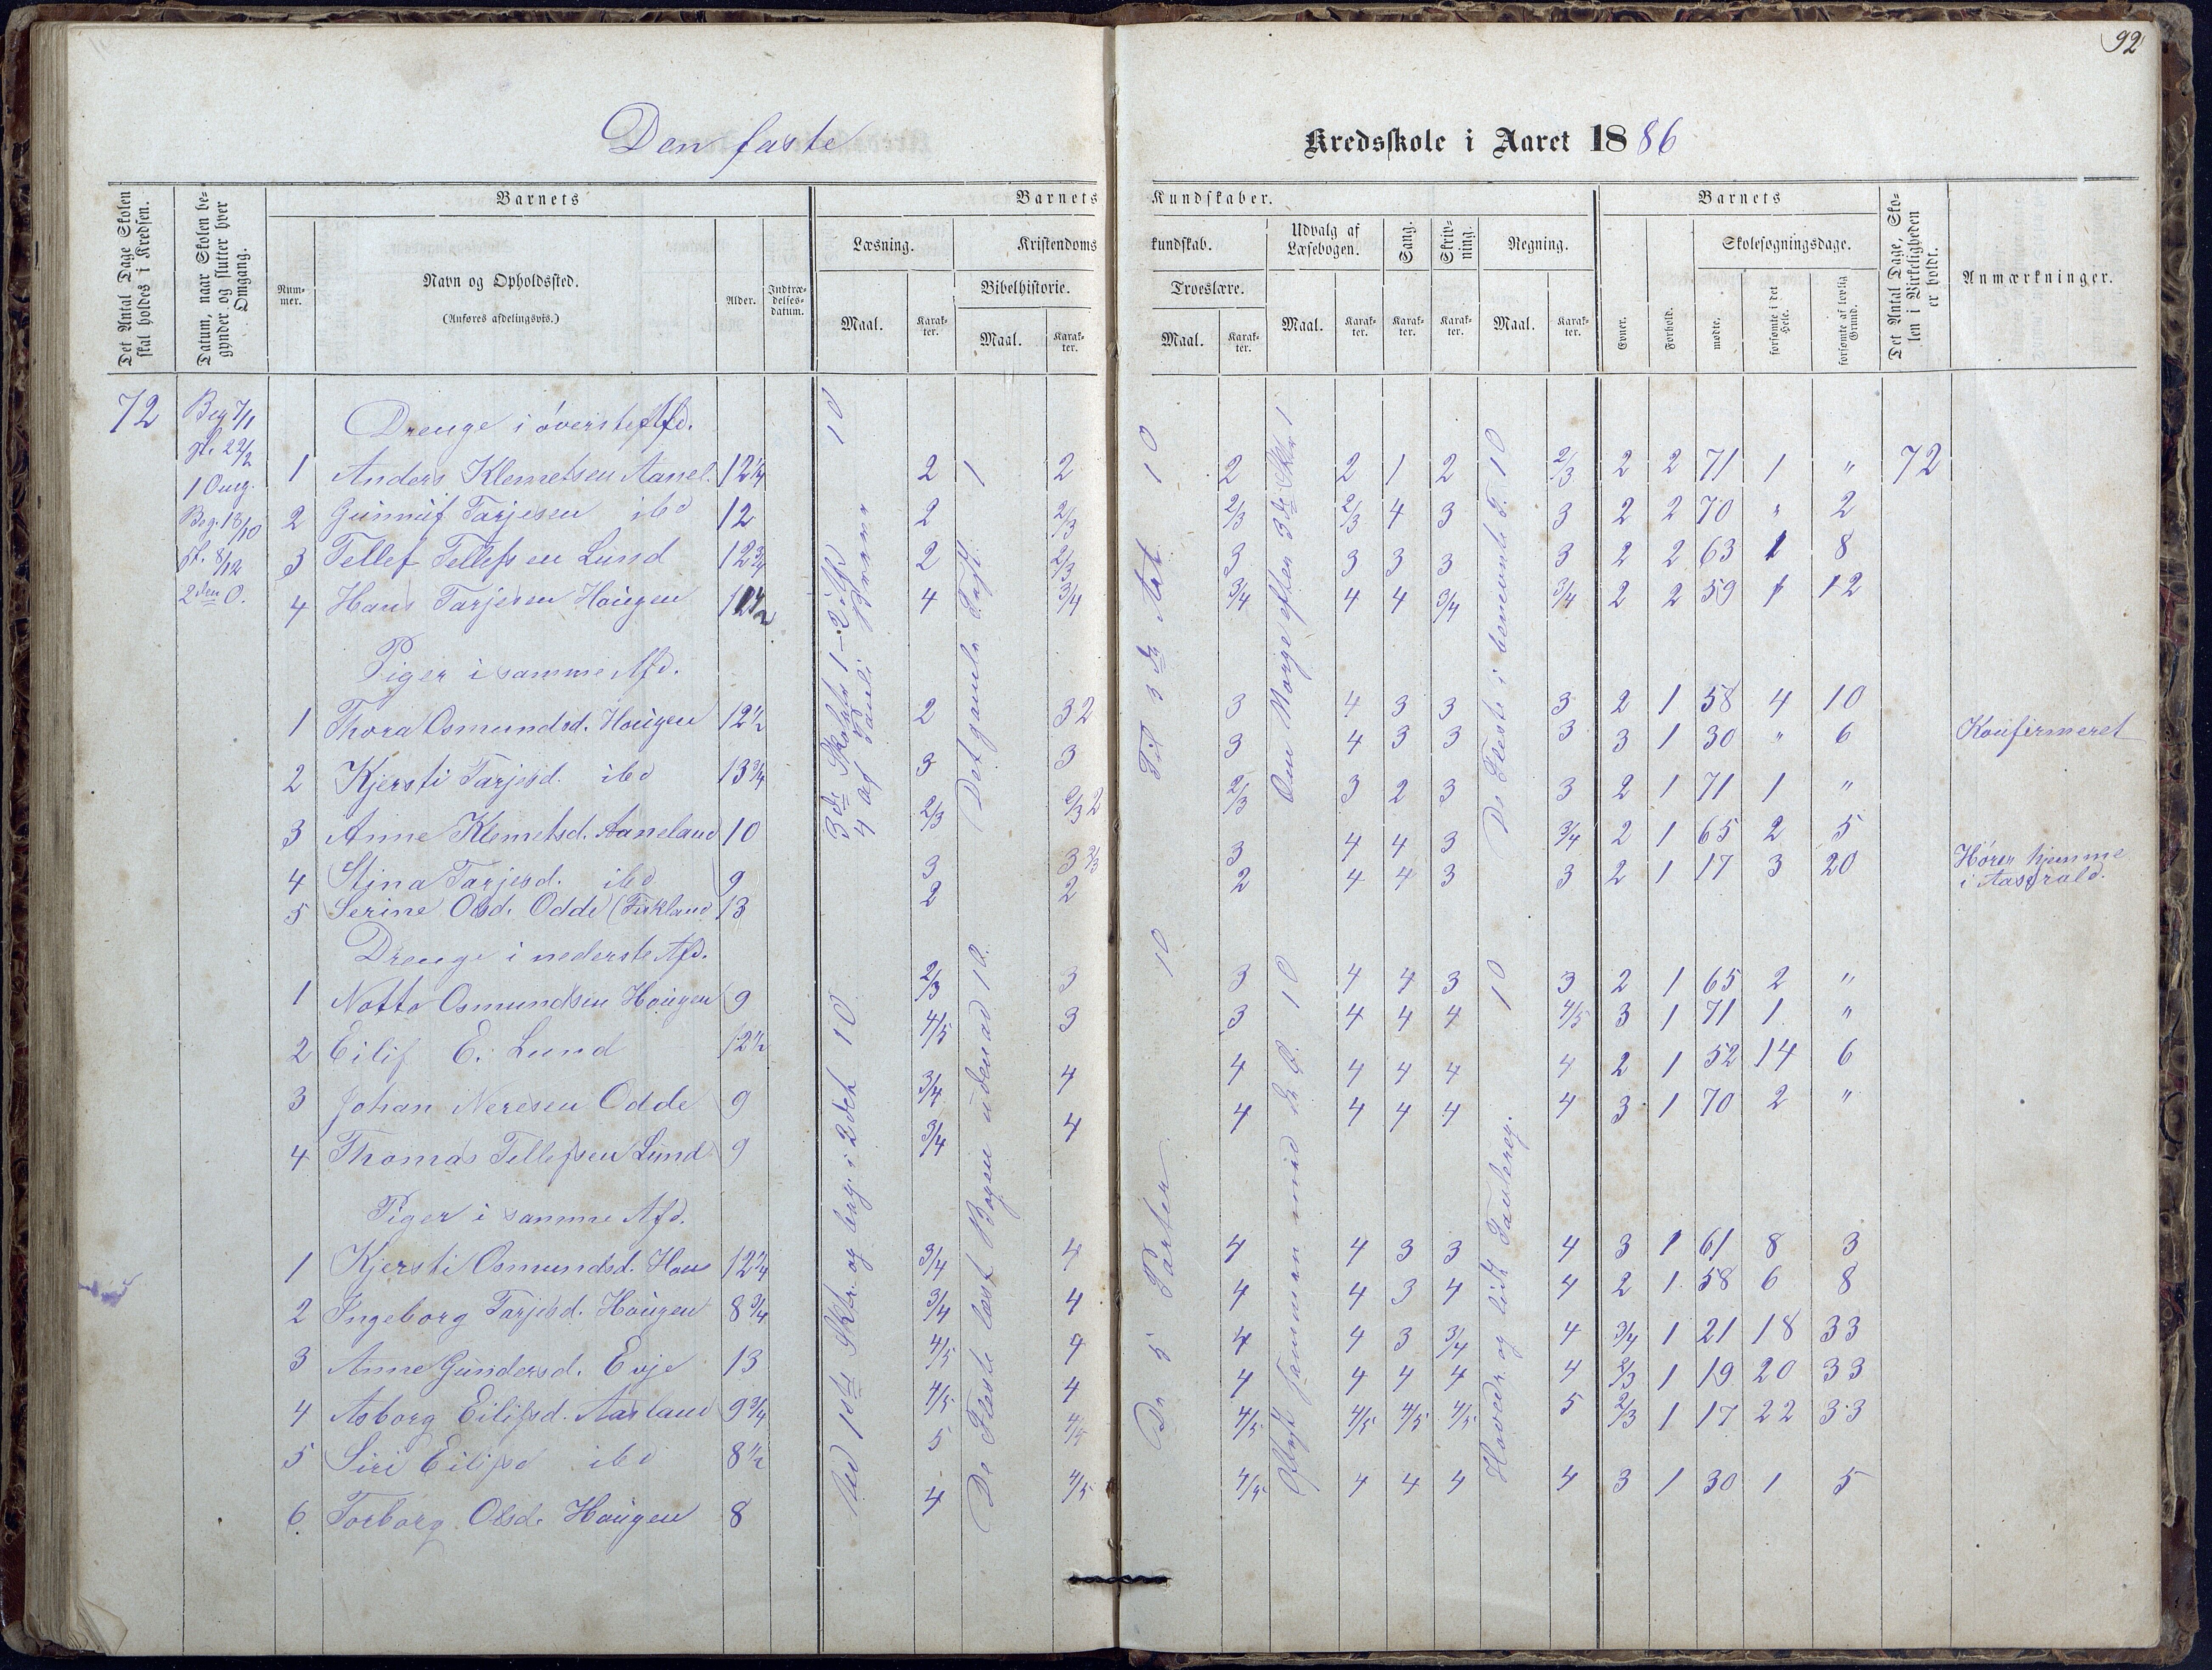 92
Den faste Kredsskole i Aaret 1886
Det Antal Dage Skolen skal holdes i Kredsen.
Datum, naar Skolen begynder og slutter hver Omgang.
Barnets
Nummer.
Navn og Opholdssted.
(Anføres afdelingsvis.)
Alder.
Indtrædelsesdatum.
Barnets Kundskaber.
Læsning.
Maal.
Karakter.
Kristendomskundskab.
Bibelhistorie.
Maal.
Karakter.
Troeslære.
Maal.
Karakter.
Udvalg af Læsebogen.
Maal.
Karakter.
Sang.
Karakter.
Skrivning.
Karakter.
Regning.
Maal.
Karakter.
Barnets
Evner.
Forhold.
Skolesøgningsdage.
mødte.
forsømte i det Hele.
forsømte af lovlig Grund.
Det Antal Dage, Skolen i Virkeligheden er holdt.
Anmærkninger.
72
Beg 7/1
sl. 22/2
1 Omg.
Beg. 18/10
sl. 8/12
2den O.
Drenge i øverste Afd.
1 Anders Klemetsen Aanel. 12 1/4 2 2 2 2 1 2 2/3 2 2 71 1 " 72
2 Gunnuf Tarjesen ibd 12 2 2/3 2/3 2/3 4 3 3 2 2 70 " 2
3 Tellef Tellefsen Lund 12 3/4 2 2/3 3 3 3 3 3 2 2 63 1 8
4 Hans Tarjesen Hougen 4 3/4 3/4 4 4 3/4 3/4 2 2 59 1 12
Piger i samme Afd.
1 Thora Osmundsd. Hougen 12 1/2 2 32 3 4 3 3 3 2 1 58 4 10
2 Kjersti Tarjesd. ibd 13 3/4 3 3 3 4 3 3 3 3 1 30 " 6 Konfirmeret
3 Anne Klemetsd. Aaneland 10 2/3 2/3 2 2/3 3 2 3 3 2 1 71 1 "
4 Stina Tarjesd. ibd 9 3 3 2/3 3 4 4 3 3/4 2 1 65 2 5
5 Serine Olsd. Odde 13 2 2 2 4 4 3 3 2 1 17 3 20 Hører hjemme
i
Drenge i nederste Afd.
1 Notto Osmundsen Hougen 9 2/3 3 3 4 4 3 3 2 1 65 2 "
2 Eilif E. Lund 12 1/2 4/5 3 3 4 4 4 4/5 3 1 71 1 "
3 Johan Neresen Odde 9 3/4 4 4 4 4 4 4 2 1 52 14 6
4 Thomas Tellefsen Lund 9 3/4 4 4 4 4 4 4 3 1 70 2 "
Piger i samme Afd.
1 Kjersti Osmundsd. Hou 12 1/4 3/4 4 4 4 3 3 4 3 1 61 8 3
2 Ingeborg Tarjesd. Hougen 8 3/4 3/4 4 4 4 3 4 4 2 1 58 6 8
3 Anne Gundersd. Evje 13 4/5 4 4 4 3 3/4 4 3/4 1 21 18 33
4 Asborg Eilifsd. Aasland 9 3/4 4/5 4 4 4 4 4 4 2/3 1 19 20 33
5 Siri Eilifsd ibd 8 1/2 5 4/5 4/5 4/5 4/5 4/5 5 2/3 1 17 22 33
6 Torborg Olsd. Hougen 8 4 4/5 4/5 4 4 4 4 3 1 30 1 5
10
Det gamle Test. 1
Til 3die Art. 10
De 5 Parter 10
10
De Fleste læst Bogen udenad 10.